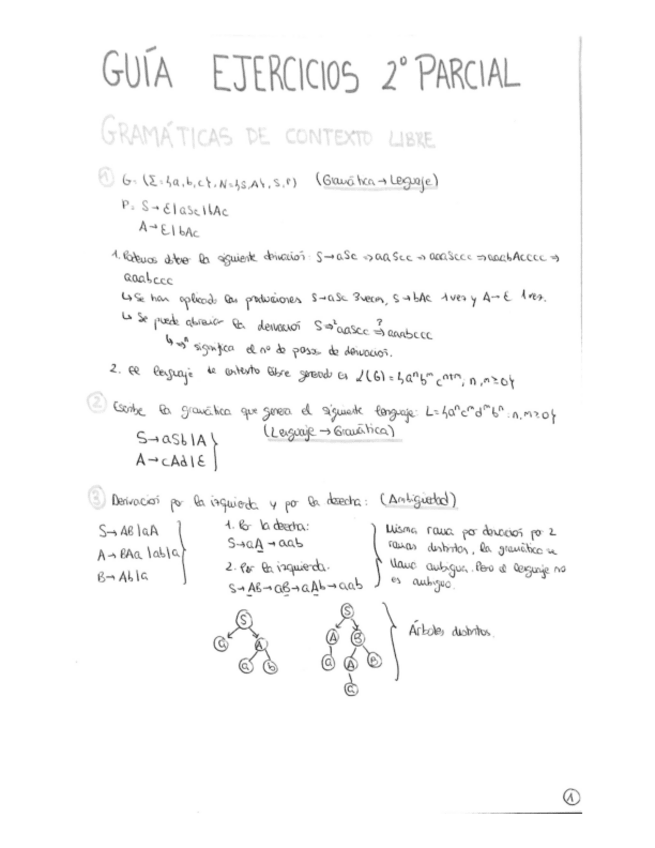 GUÍA EJERCICIOS 2º PARCIAL
GRAMÁTICAS DE CONTEXTO LIBRE
1 G=(Σ={a,b,c}, N={S,A}, S, P) (Gramática → Lenguaje)
P: S→ε|aSc|bAc
A→ε|bAc
1. Podemos obtener la siguiente derivación: S→aSc⇒aaScc→aaaSccc⇒aaabAcccc⇒
aaabccc
↳ Se han aplicado las producciones S→aSc 3 veces, S→bAc 1 vez y A→ε 1 vez.
↳ Se puede abreviar la derivación S⇒² aaScc ⇒³ aaabccc
↳ ⇒ⁿ significa el nº de pasos de derivación.
2. El lenguaje de contexto libre generado es L(G)={aⁿbᵐcⁿ⁺ᵐ, n,m≥0}
2 Escribe la gramática que genera el siguiente lenguaje: L={aⁿcᵐdᵐbⁿ: n,m≥0}
(Lenguaje → Gramática)
S→aSb|A
A→cAd|ε
3 Derivación por la izquierda y por la derecha: (Ambigüedad)
S→AB|aA
A→BAa|ab|a
B→Ab|a
1. Por la derecha:
S→aA→aab
2. Por la izquierda.
S→AB→aB→aAb→aab
Misma rama por derivación por 2
ramas distintas, la gramática se
llama ambigua. Pero el lenguaje no
es ambiguo.
S
a A
a b
S
A B
a A B
a
Árboles distintos.
1